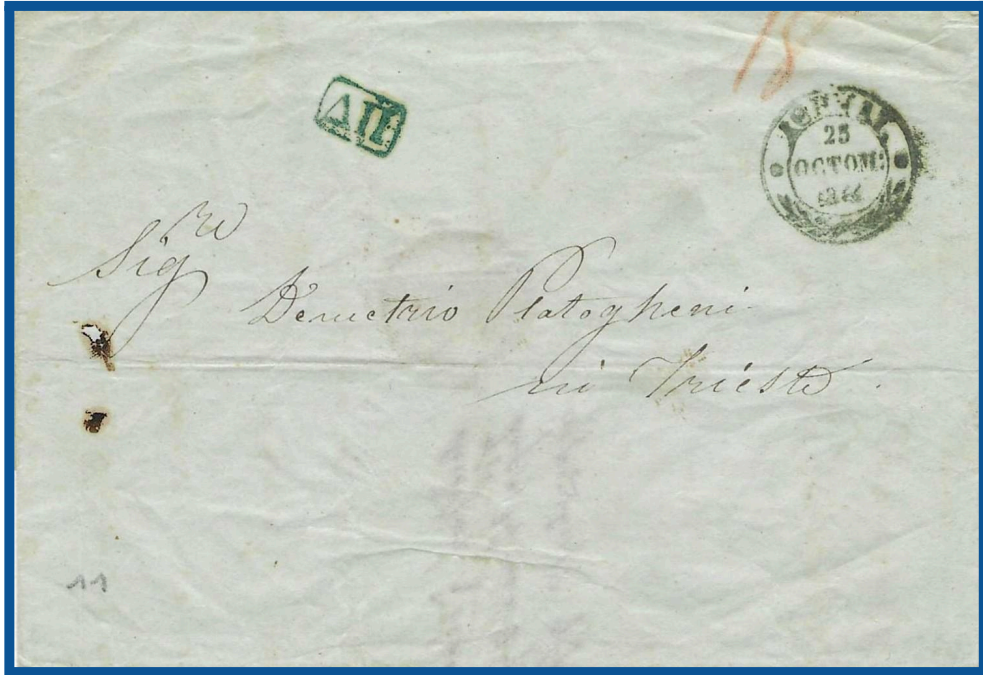 ΔΠ
25
OCTOM:
Sigre
Demetrio Platogheni
in Trieste
11